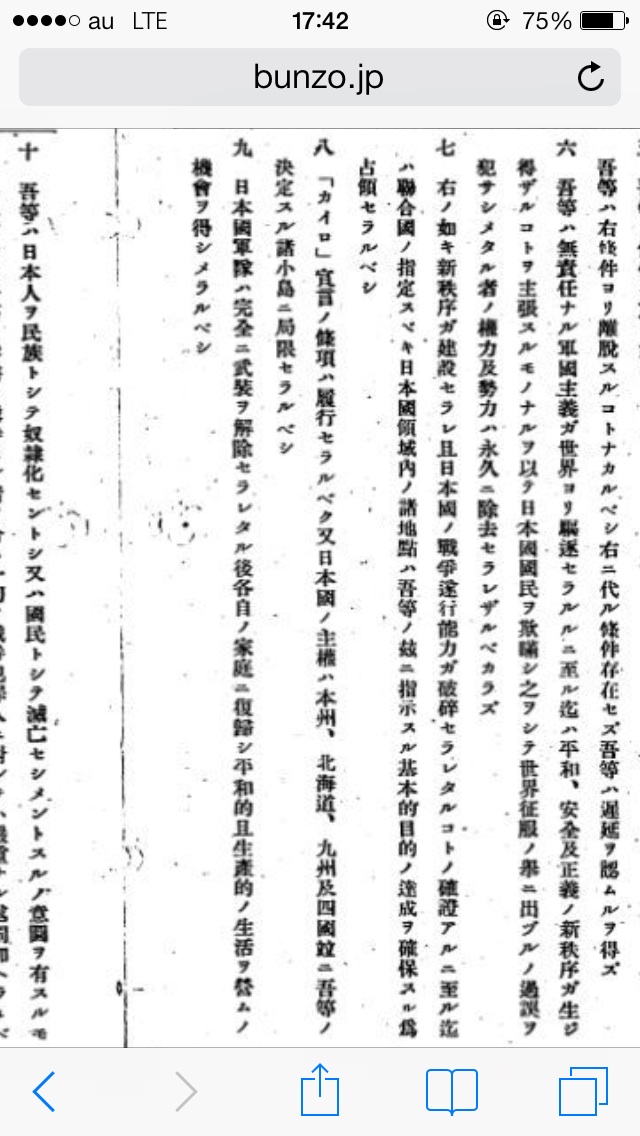 au LTE 17:42 75%
bunzo.jp
吾等ハ右條件ヨリ離脫スルコトナカルベシ右ニ代ル條件存在セズ吾等ハ遲延ヲ認ムルヲ得ズ
六 吾等ハ無責任ナル軍國主義ガ世界ヨリ驅逐セラルルニ至ル迄ハ平和、安全及正義ノ新秩序ガ生ジ
得ザルコトヲ主張スルモノナルヲ以テ日本國國民ヲ欺瞞シ之ヲシテ世界征服ノ擧ニ出ヅルノ過誤ヲ
犯サシメタル者ノ權力及勢力ハ永久ニ除去セラレザルベカラズ
七 右ノ如キ新秩序ガ建設セラレ且日本國ノ戰爭遂行能力ガ破碎セラレタルコトノ確證アルニ至ル迄
ハ聯合國ノ指定スベキ日本國領域內ノ諸地點ハ吾等ノ玆ニ指示スル基本的目的ノ達成ヲ確保スル爲
占領セラルベシ
八 「カイロ」宣言ノ條項ハ履行セラルベク又日本國ノ主權ハ本州、北海道、九州及四國竝ニ吾等ノ
決定スル諸小島ニ局限セラルベシ
九 日本國軍隊ハ完全ニ武裝ヲ解除セラレタル後各自ノ家庭ニ復歸シ平和的且生產的ノ生活ヲ營ムノ
機會ヲ得シメラルベシ
十 吾等ハ日本人ヲ民族トシテ奴隷化セントシ又ハ國民トシテ滅亡セシメントスルノ意圖ヲ有スルモ